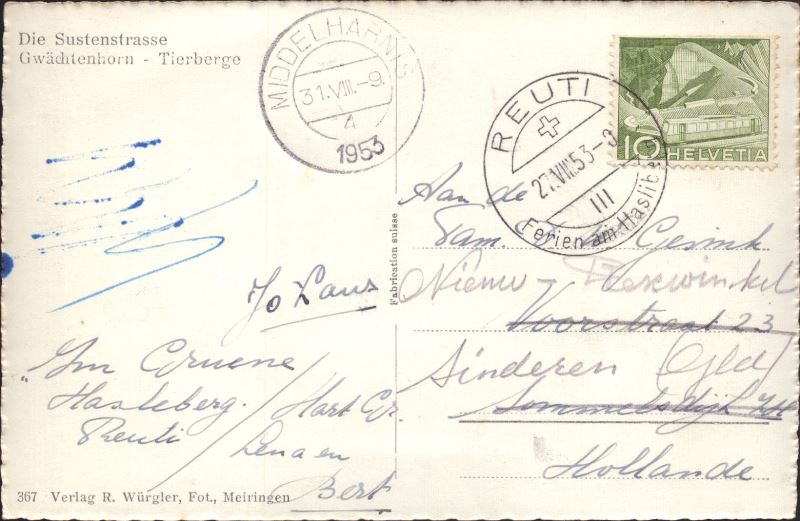 Die Sustenstrasse
Gwächtenhorn - Tierberge
MIDDELHARNIS
31.VIII.-9.
4
1953
REUTI
27.VIII.53-
III
Ferien am Hasliberg
10 HELVETIA
Aan de
Fam. Gesink
Nieuw -
Voorstraat 23
Sinderen (Gld)
Sommelsdijk ZH
Hollande
Fabrication suisse
Jo Laus
"Im Gruene
Hasleberg.
Reuti
Hart Gr.
Lena en
Bert
367 Verlag R. Würgler, Fot., Meiringen